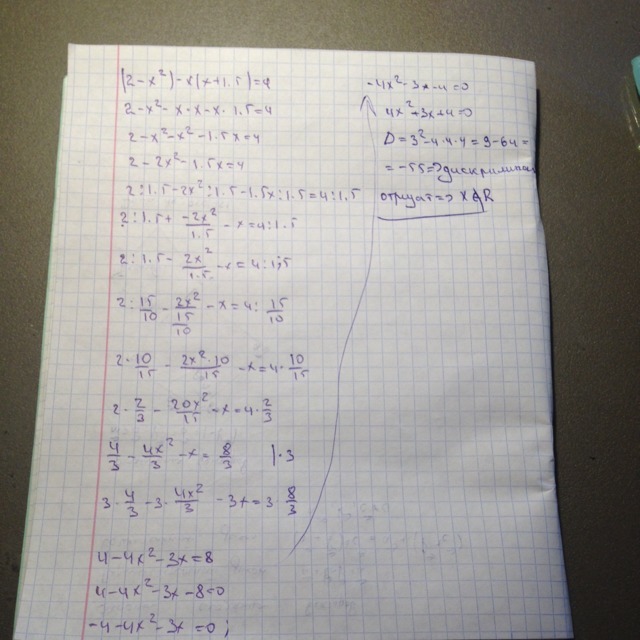 (2-x²)-x(x+1.5)=4
2-x²-x·x-x·1.5=4
2-x²-x²-1.5x=4
2-2x²-1.5x=4
2:1.5-2x²:1.5-1.5x:1.5=4:1.5
2:1.5+ -2x²/1.5 -x=4:1.5
2:1.5- 2x²/1.5 -x=4:1,5
2: 15/10 - 2x²/(15/10) -x=4: 15/10
2· 10/15 - 2x²·10/15 -x=4· 10/15
2· 2/3 - 20x²/15 -x=4· 2/3
4/3 - 4x²/3 -x= 8/3 |·3
3· 4/3 -3· 4x²/3 -3x=3· 8/3
4-4x²-3x=8
4-4x²-3x-8=0
-4-4x²-3x=0;
-4x²-3x-4=0
4x²+3x+4=0
D=3²-4·4·4=9-64=
=-55=>дискриминан
отрицат=> x∉R